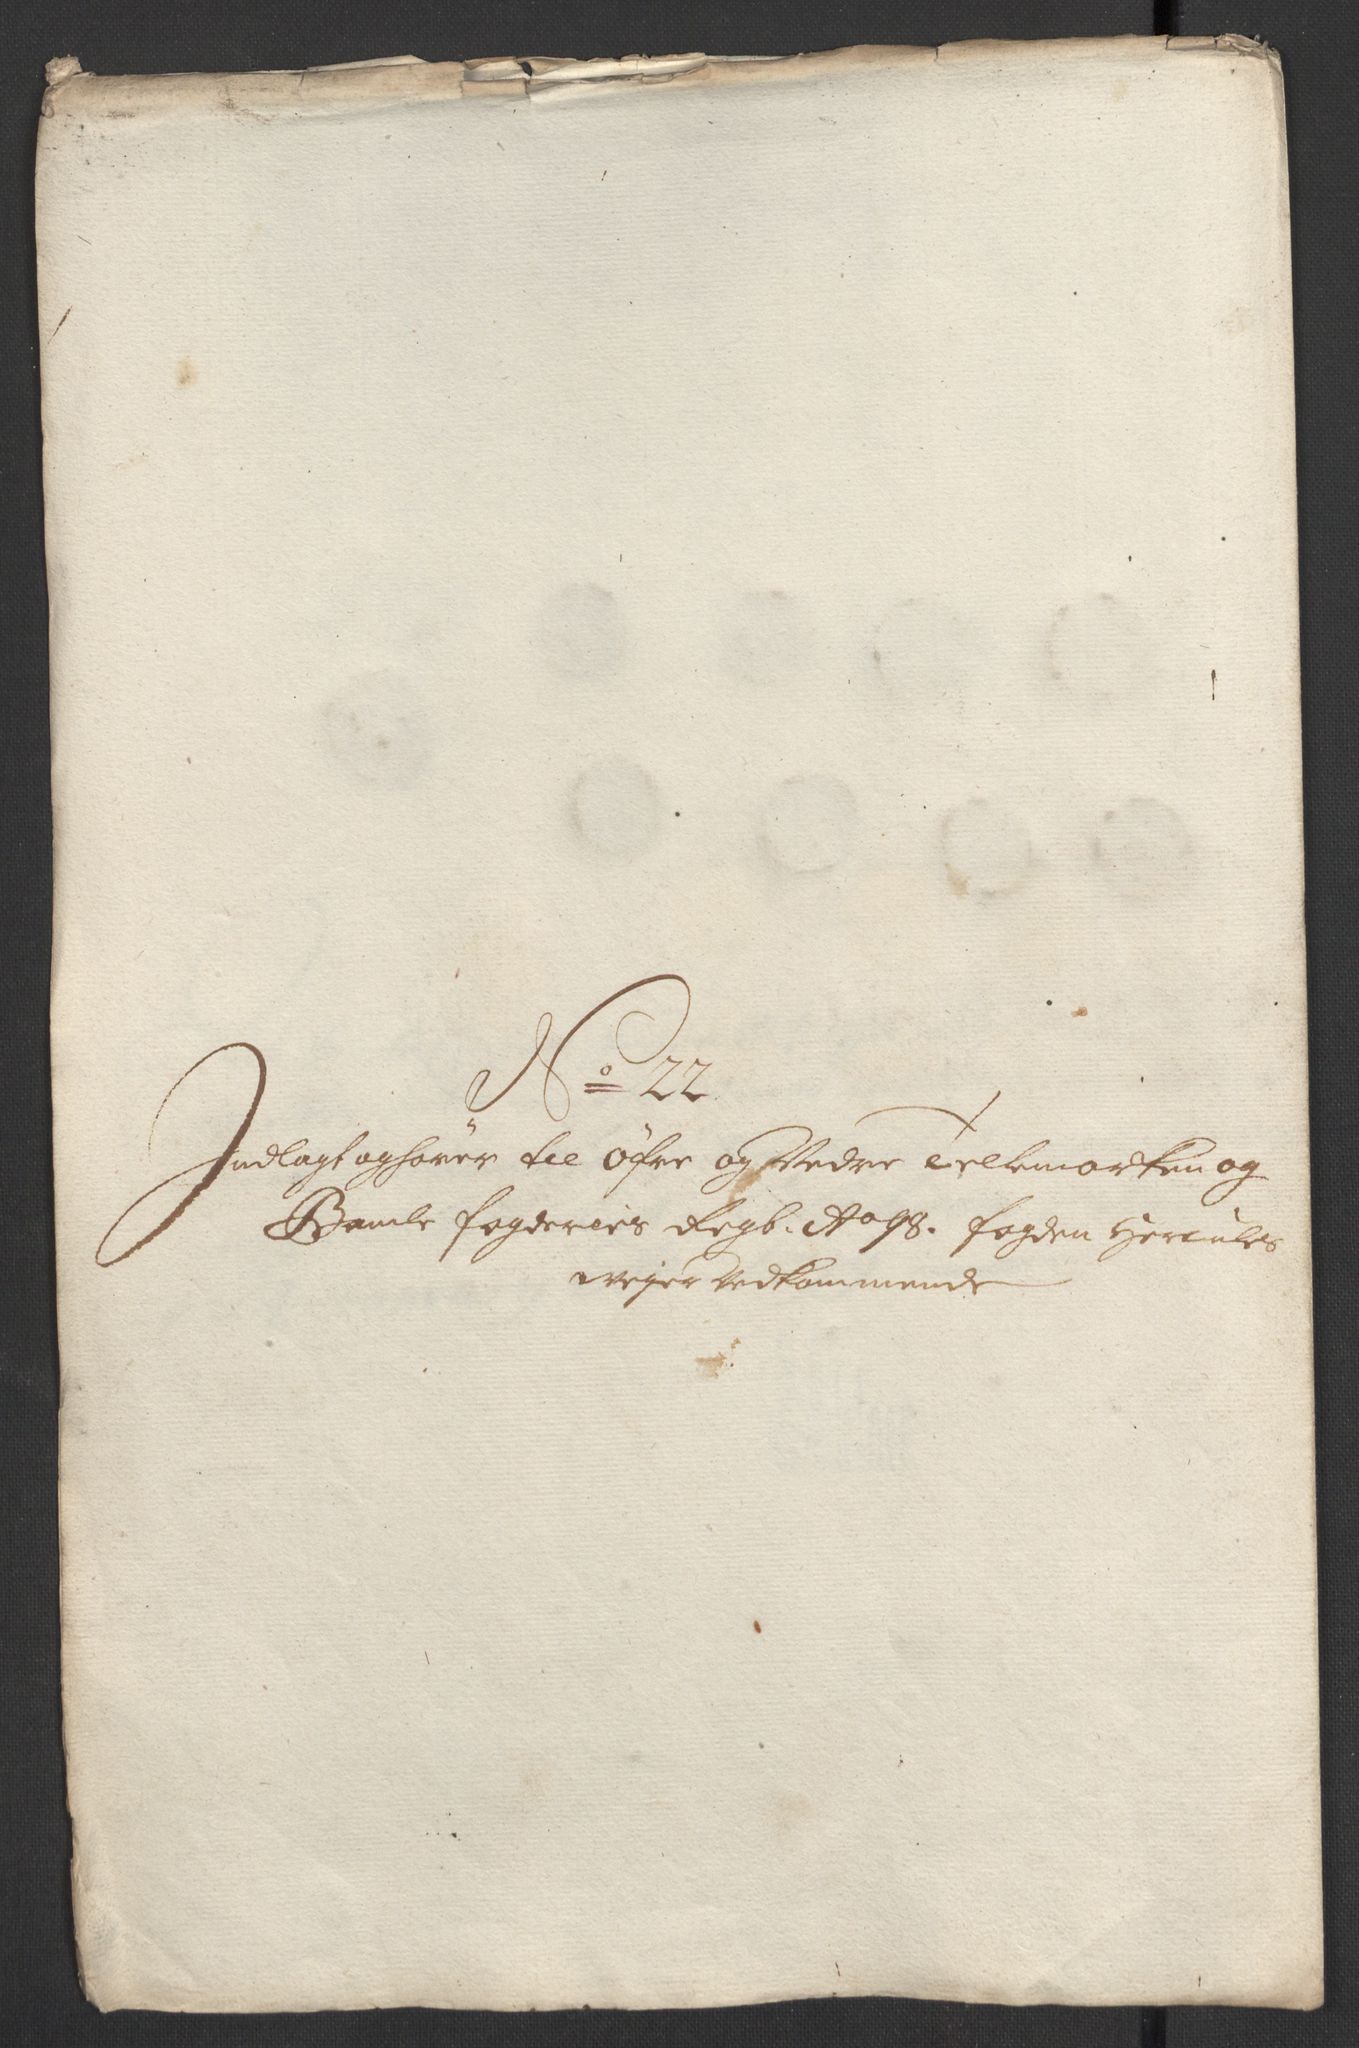 No 22
Indlagt og hører til Øfre og Nedre Tellemarken og
Bamle fogderies Regb. Ao 98. fogden Hercules
Weyer Vedkommende